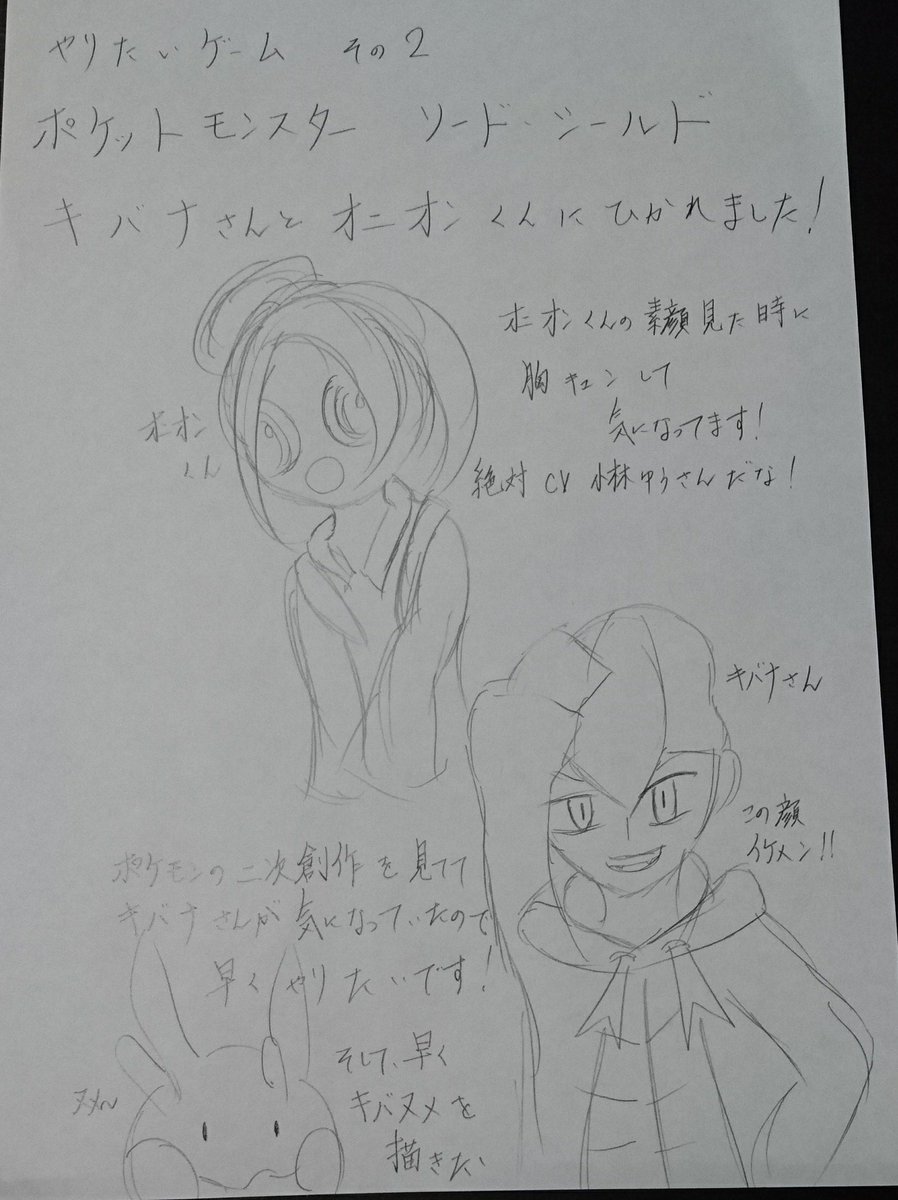 やりたいゲーム その2
ポケットモンスター ソード・シールド
キバナさんとオニオンくんにひかれました!
オニオンくんの素顔見た時に
胸キュンして
気になってます!
絶対CV小林ゆうさんだな!
オニオン
くん
キバナさん
この顔
イケメン!!
ポケモンの二次創作を見てて
キバナさんが気になっていたので
早くやりたいです!
そして、早く
キバヌメを
描きたい
ヌメ〜